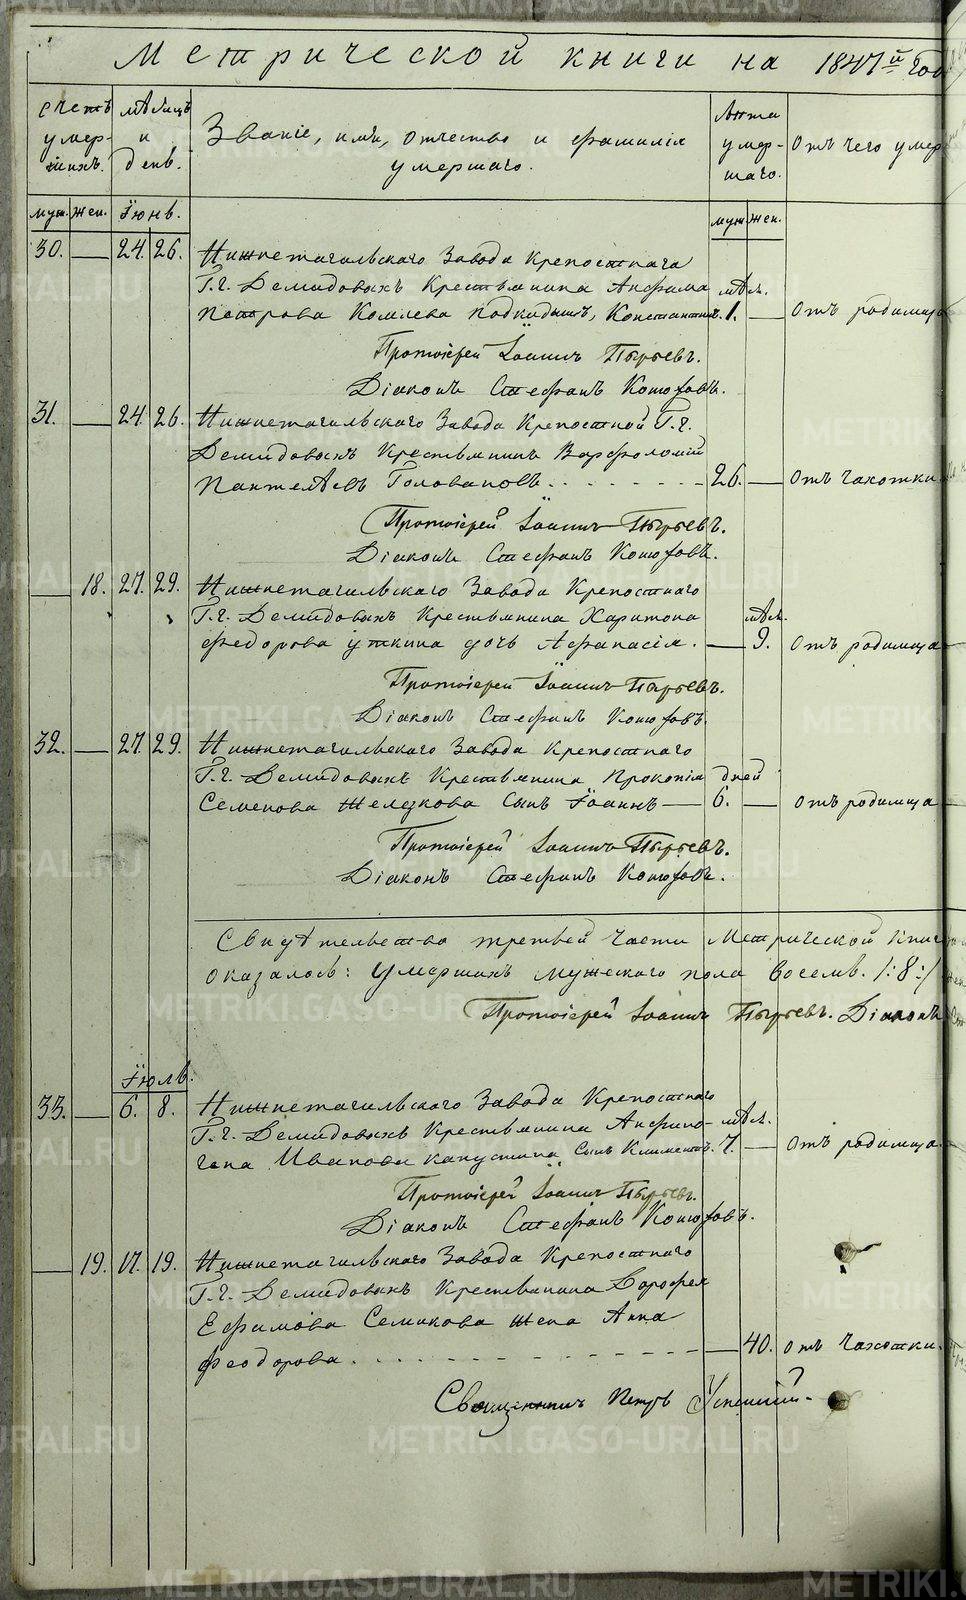 Метрической книги на 1847й год
Счетъ умер-шихъ.
мѣсяцъ и день.
Званіе, имя, отчество и фамилія умершаго.
Лѣта умер-шаго.
Отъ чего умер
муж. жен. Іюнь. муж. жен.
30. — 24. 26. Нижнетагильскаго Завода Крепостнаго
Г.г. Демидовыхъ Крестьянина Анфима мѣс.
Петрова Комлева подкидышъ, Константинъ. 1. — Отъ родимца
Протоіерей Іоаннъ Пырьевъ.
Діаконъ Стефанъ Конюховъ.
31. — 24. 26. Нижнетагильскаго Завода Крепостной Г.г.
Демидовыхъ Крестьянинъ Варфоломій
Пантелѣевъ Головановъ. 26. — Отъ чахотки
Протоіерей Іоаннъ Пырьевъ.
Діаконъ Стефанъ Конюховъ.
— 18. 27. 29. Нижнетагильскаго Завода Крепостнаго
Г.г. Демидовыхъ Крестьянина Харитона мѣс.
Федорова Уткина дочь Афанасія. — 9. Отъ родимца
Протоіерей Іоаннъ Пырьевъ.
Діаконъ Стефанъ Конюховъ.
32. — 27. 29. Нижнетагильскаго Завода Крепостнаго
Г.г. Демидовыхъ Крестьянина Прокопія дней
Семенова Железкова Сынъ Іоаннъ — 6. — Отъ родимца
Протоіерей Іоаннъ Пырьевъ.
Діаконъ Стефанъ Конюховъ.
Свидѣтельство третьей части Метрической Книг
оказалось: Умершихъ мужескаго пола восемь. /:8:/
Протоіерей Іоаннъ Пырьевъ. Діаконъ
Іюль.
33. — 6. 8. Нижнетагильскаго Завода Крепостнаго
Г.г. Демидовыхъ Крестьянина Анфино- мѣс.
гена Иванова Капустина Сынъ Климентъ. 7. — Отъ родимца
Протоіерей Іоаннъ Пырьевъ.
Діаконъ Стефанъ Конюховъ.
— 19. 17. 19. Нижнетагильскаго Завода Крепостнаго
Г.г. Демидовыхъ Крестьянина Дорофея
Ефимова Семикова жена Анна
Феодорова. — 40. Отъ Чахотки.
Священникъ Петръ
METRIKI.GASO-URAL.RU